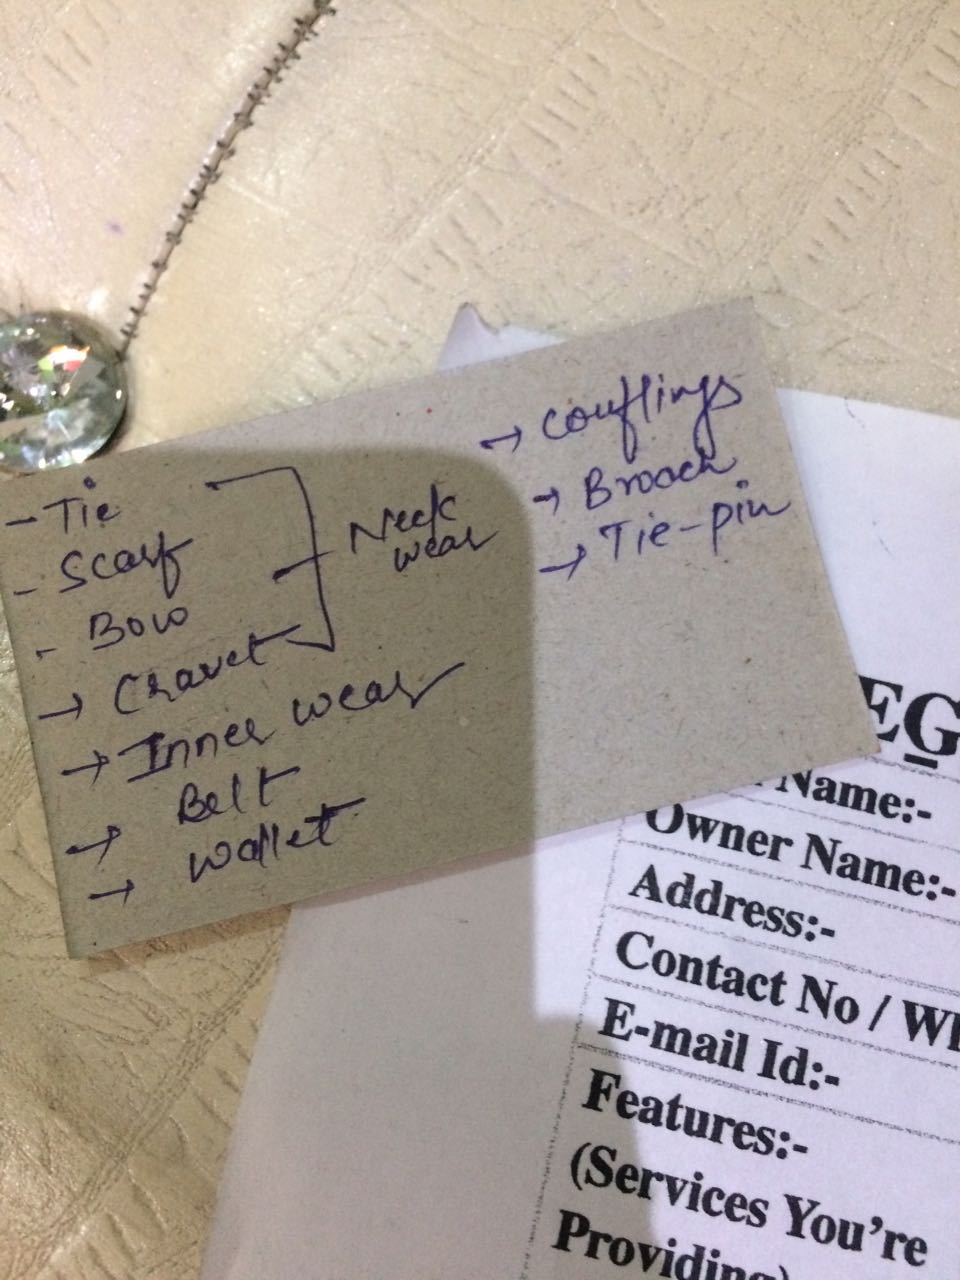 - Tie
- Scarf
- Bow
→ Cravet
Neck
wear
→ Inner wear
→ Belt
→ wallet
→ couflings
→ Broach
→ Tie-pin
EG
Name:-
Owner Name:-
Address:-
Contact No / Wh
E-mail Id:-
Features:-
(Services You're
Providing)